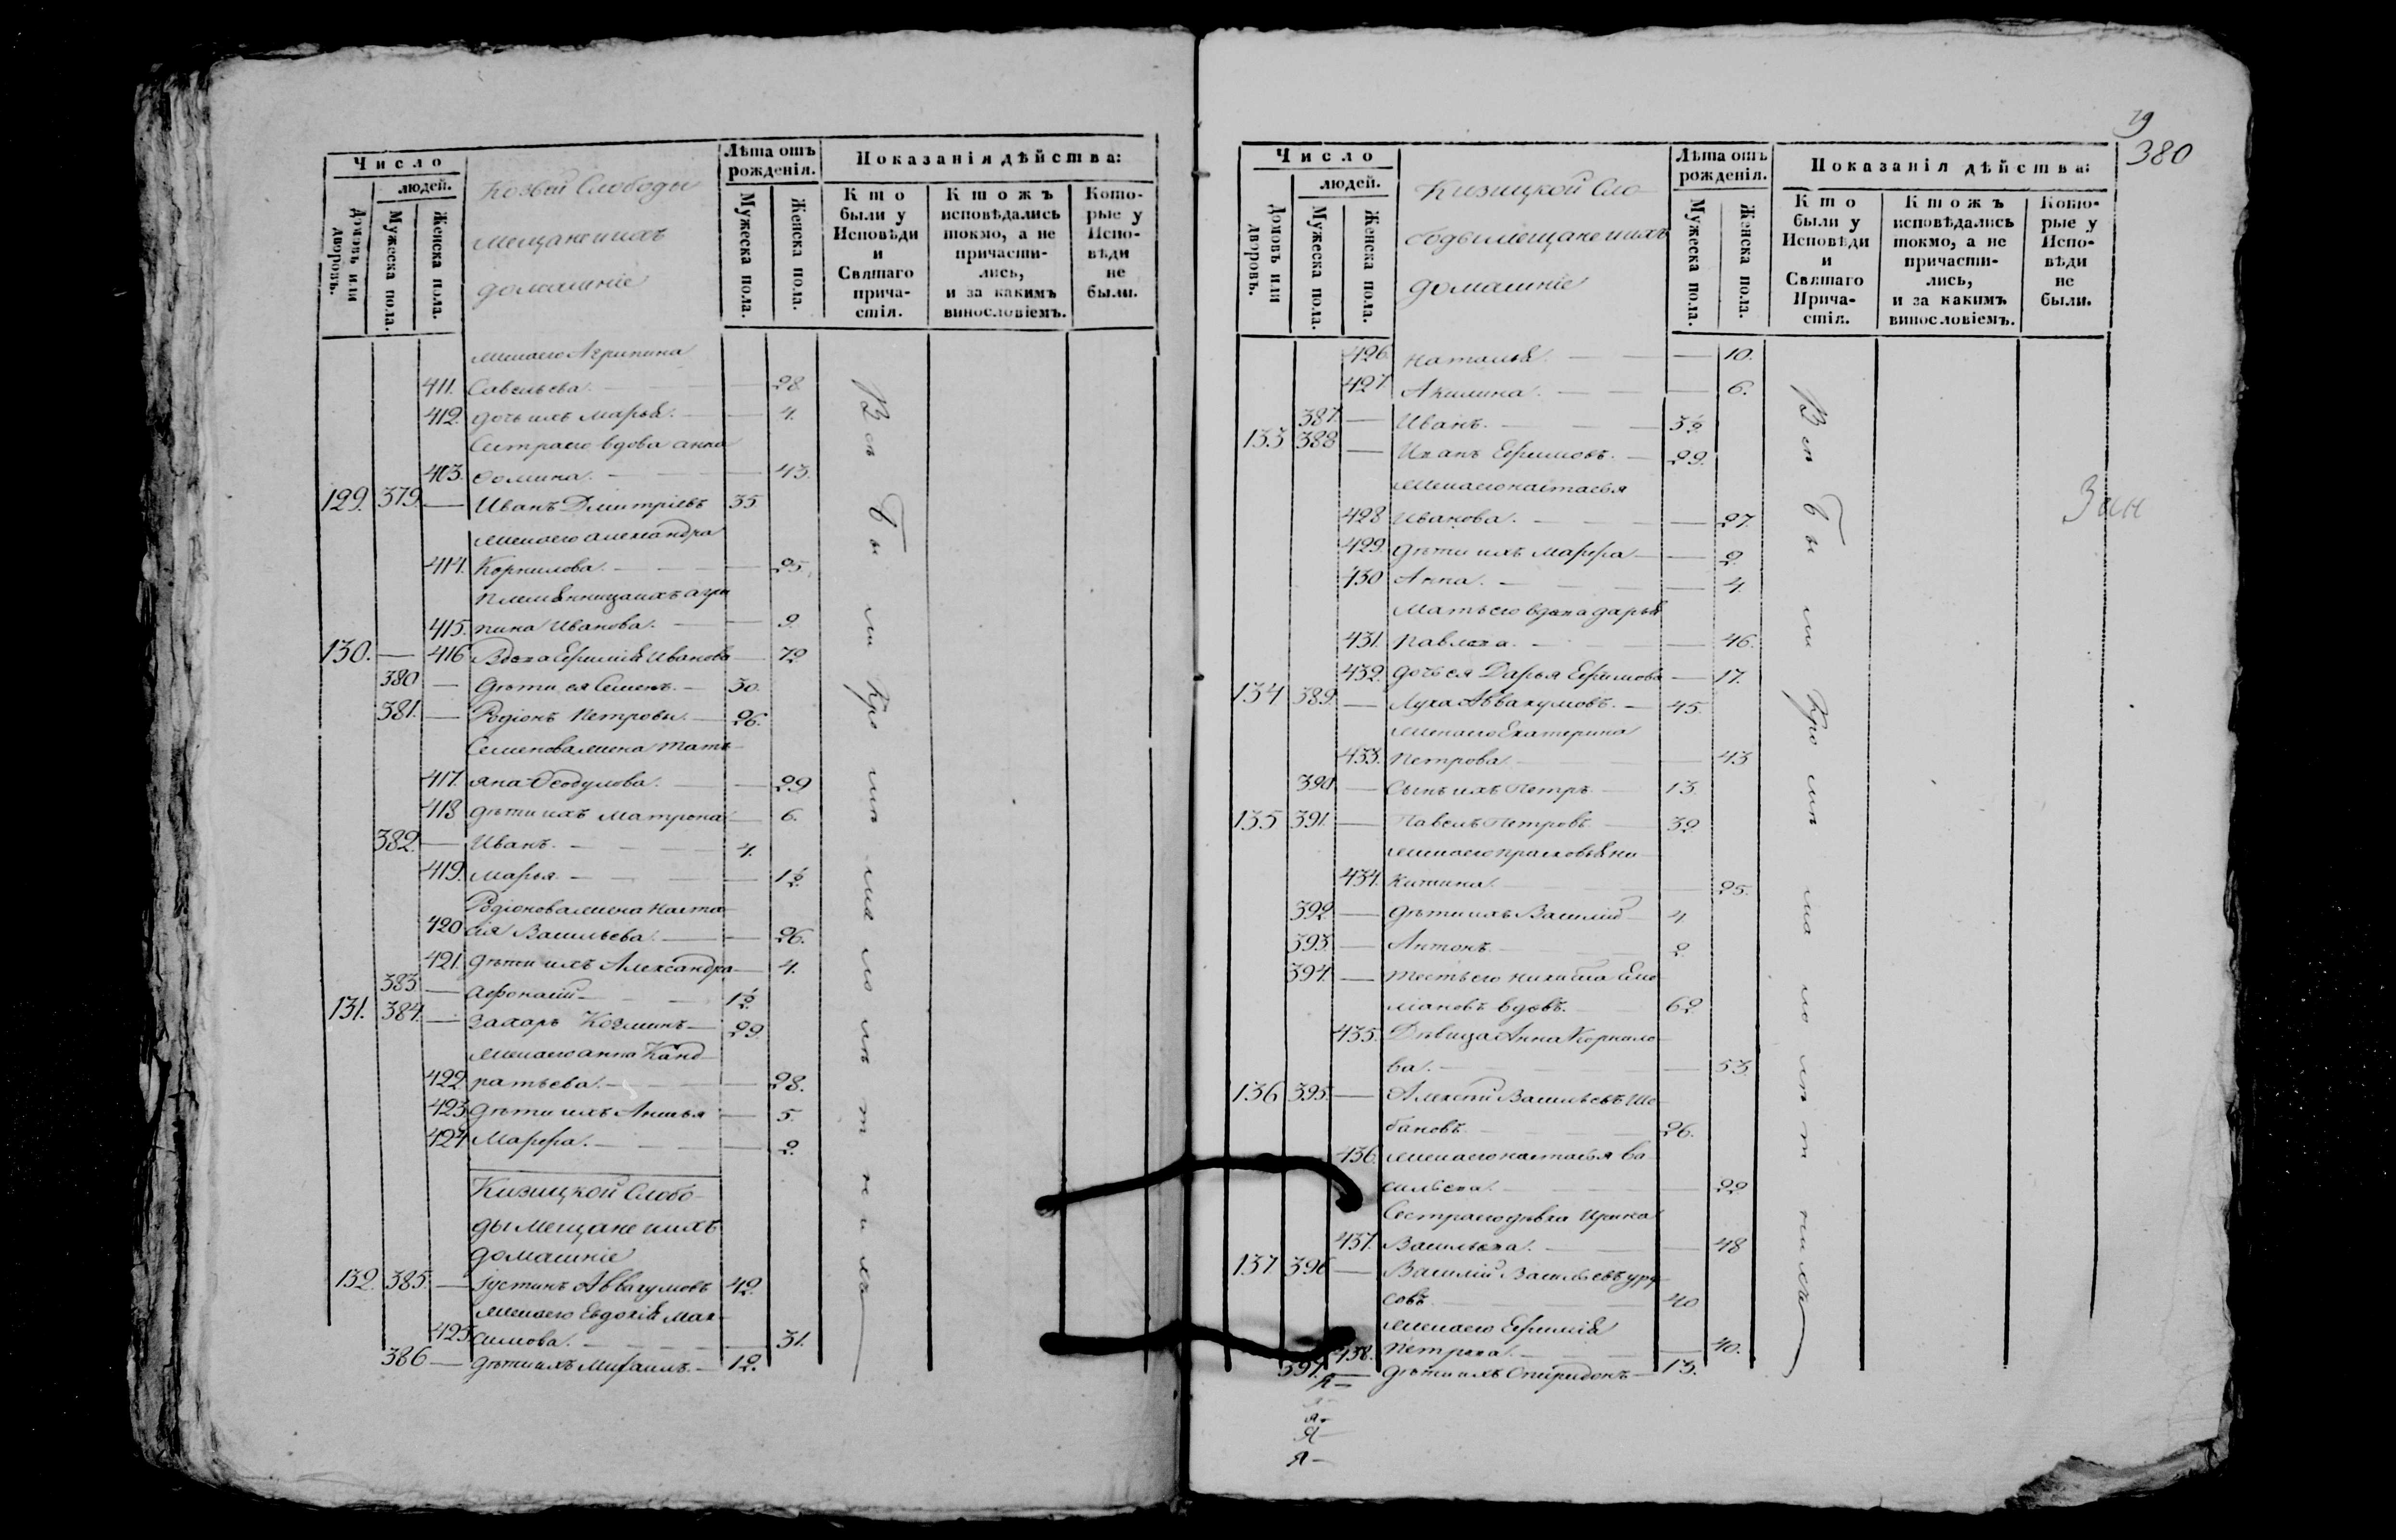 Число
людей.
Домовъ или дворовъ.
Мужеска пола.
Женска пола.
Козьей Слободы
мещане и ихъ
домашніе
Лѣта отъ рожденія.
Мужеска пола.
Женска пола.
Показанія дѣйства:
Кто были у Исповѣди и Святаго причастія.
Ктожъ исповѣдались токмо, а не причастились, и за какимъ винословіемъ.
Которые у Исповѣди не были.
жена его Агрипина
411. Савельева. — 28.
412. дочь ихъ Марья. — 4.
Сестра его вдова анна
413. Фомина. — 43.
129. 379. — Иванъ Дмитріевъ 35.
жена его александра
414. Корнилова. — 25.
племянница ихъ агри
415. пина Иванова. — 9.
130. — 416 Вдова Ефимія Иванова — 72
380 — дѣти ея Семенъ. — 30.
381. — Родіонъ Петровы. — 26.
Семенова жена Тать
417. яна Феодулова. — 29
418 дѣти ихъ Матрона — 6.
382. — Иванъ. — 4.
419. Марья. — 1½
Родіонова жена Наста
420 сія Васильева. — 26.
421. дѣти ихъ Александра — 4.
383. — Афонасій — 1½
131. 384. — Захаръ Козминъ — 29.
жена его анна Канд
422. ратьева. — 28.
423. дѣти ихъ Анисья — 5.
424 Марфа. — 2.
Кизицкой Слобо
ды мещане и ихъ
домашніе
132. 385. — Іустинъ Аввакумовъ 42.
жена его Евдокія Мак
425 симова. — 31.
386 — дѣти ихъ Михаилъ. — 12.
Всѣ были кромѣ малолѣтнихъ
19
380
Число
людей.
Домовъ или дворовъ.
Мужеска пола.
Женска пола.
Кизицкой Сло
боды мещане и ихъ
домашніе
Лѣта отъ рожденія.
Мужеска пола.
Женска пола.
Показанія дѣйства:
Кто были у Исповѣди и Святаго Причастія.
Ктожъ исповѣдались токмо, а не причастились, и за какимъ винословіемъ.
Которые у Исповѣди не были.
426. Наталья. — 10.
427. Акилина. — 6.
387. — Иванъ. — 3½
133 388 — Иванъ Ефимовъ. — 29.
жена его настасья
428 Иванова. — 27.
429. дѣти ихъ Марфа — 2.
430 Анна. — 4.
Мать его вдова дарья
431. Павлова. — 46.
432. дочь ея Дарья Ефимова — 17.
134 389. — Лука Аввакумовъ. — 45.
жена его Екатерина
433. Петрова — 43
390. — Сынъ ихъ Петръ — 13.
135 391. — Павелъ Петровъ — 32
жена его прасковья ни
434. китина. — 25.
392. — дѣти ихъ Василій — 4.
393. — Антонъ. — 2.
394. — тесть его никита Еме
ліановъ вдовъ. — 62
435. Дѣвица Анна Корнило
ва. — 53.
136 395. — Алексѣй Васильевъ Ше
бановъ. — 26.
436. жена его настасья ва
сильева. — 22
Сестра его дѣвка Ирина
437. Васильева. — 48
137 396 — Василій Васильевъ уру
совъ. — 40
жена его Ефимія
438. Петрова. — 40.
397. — дѣти ихъ Спиридонъ — 13.
Всѣ были кромѣ малолѣтнихъ